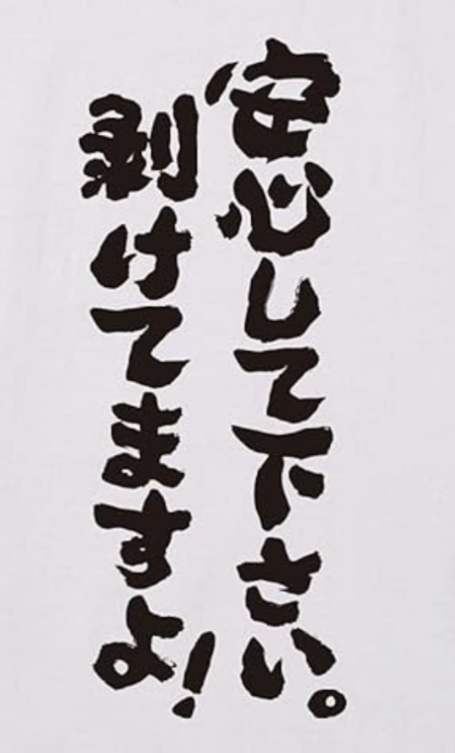 安心して下さい。
剥けてますよ!